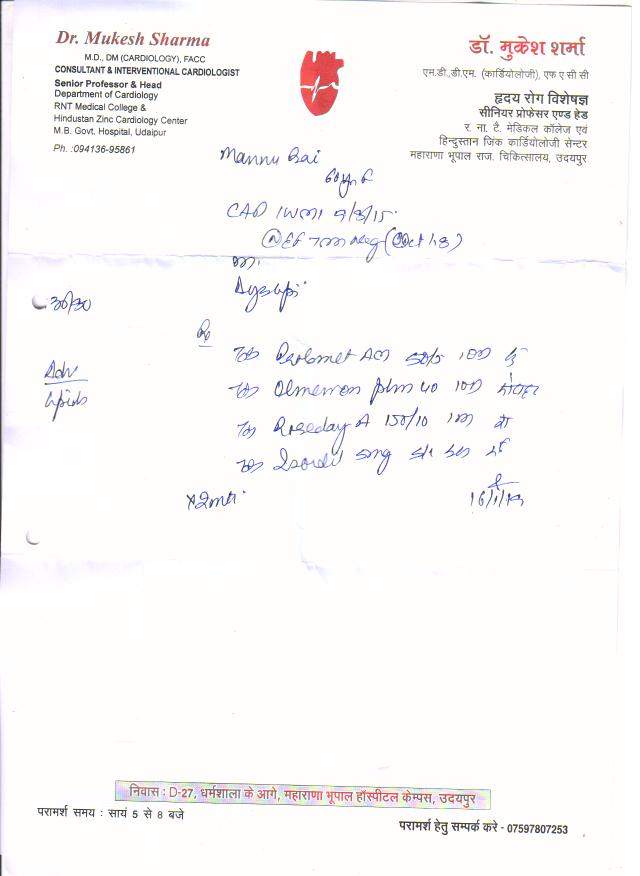 Dr. Mukesh Sharma
M.D., DM (CARDIOLOGY), FACC
CONSULTANT & INTERVENTIONAL CARDIOLOGIST
Senior Professor & Head
Department of Cardiology
RNT Medical College &
Hindustan Zinc Cardiology Center
M.B. Govt. Hospital, Udaipur
Ph. :094136-95861
डॉ. मुकेश शर्मा
एम.डी.,डी.एम. (कार्डियोलोजी), एफ ए सी सी
हृदय रोग विशेषज्ञ
सीनियर प्रोफेसर एण्ड हेड
र. ना. टै. मेडिकल कॉलेज एवं
हिन्दुस्तान जिंक कार्डियोलोजी सेन्टर
महाराणा भूपाल राज. चिकित्सालय, उदयपुर
Mannu Bai
CAD IWMI 9/3/15
EF TMT Neg (Oct 18)
30/30
Rx
Adv
Lipids
Tab AM 50/5
Tab Olmemon 40
Tab Roseday A 150/10
Tab Isordil 5mg
निवास : D-27, धर्मशाला के आगे, महाराणा भूपाल हॉस्पीटल केम्पस, उदयपुर
परामर्श समय : सायं 5 से 8 बजे
परामर्श हेतु सम्पर्क करे - 07597807253